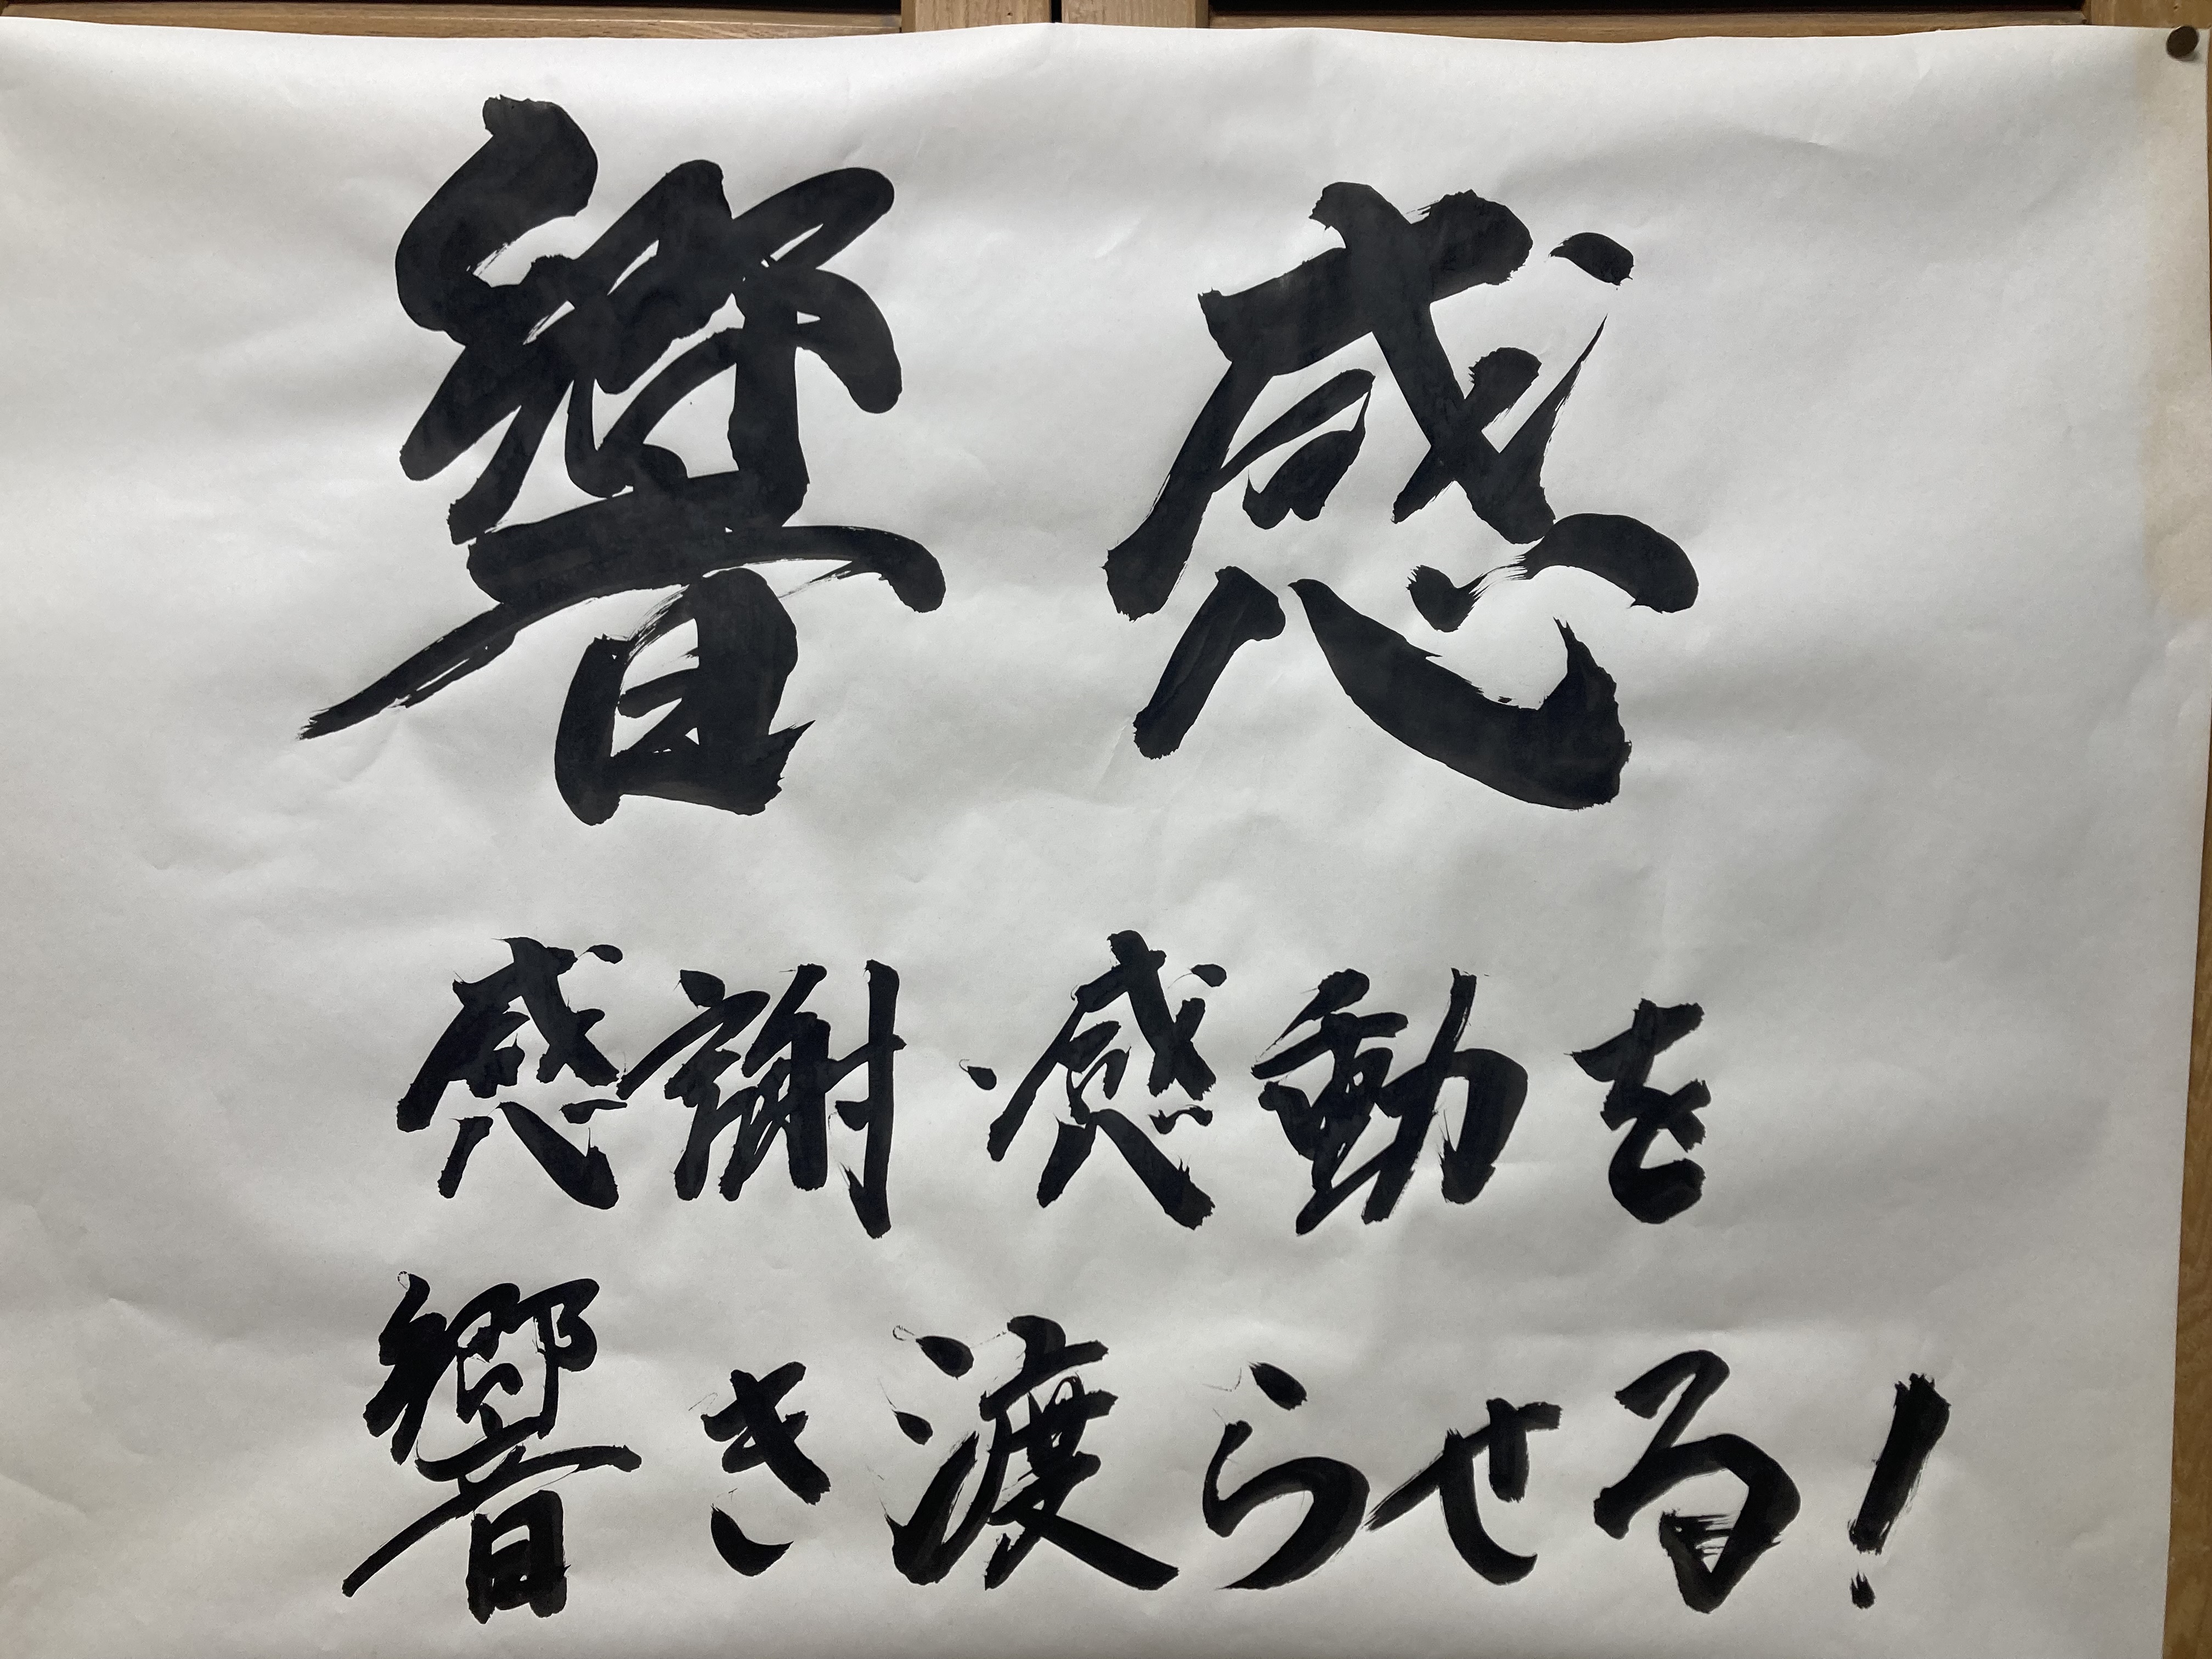 響感
感謝・感動を
響き渡らせる!